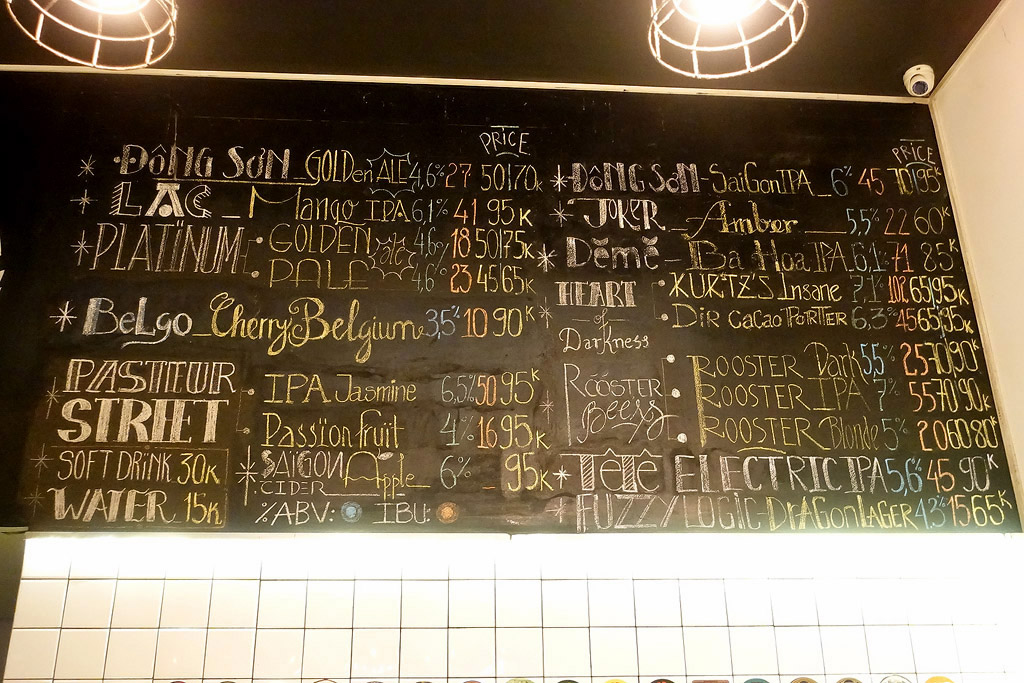 PRICE
ĐÔNG SƠN GOLDen ALE 4,6% 27 50|70K
LẠC - Mango IPA 6,1% 41 95K
PLATINUM GOLDEN ale 4,6% 18 50|75K
PALE 4,6% 23 45|65K
BeLgo - Cherry Belgium 3,5% 10 90K
PASTEUR STREET IPA Jasmine 6,5% 50 95K
Passion fruit 4% 16 95K
SOFT DRINK 30K
WATER 15K
SAIGON CIDER Apple 6% - 95K
%ABV: IBU:
PRICE
ĐÔNG SƠN - SaiGon IPA - 6% 45 70|95K
JOKER - Amber 5,5% 22 60K
Dême - Ba Hoa IPA 6,1% 71 85K
HEART of Darkness KURTZ'S Insane 7,1% 102 65|95K
Dir cacao PORTER 6,3% 45 65|95K
ROOSTER Beers ROOSTER Dark 5,5% 25 70|90K
ROOSTER IPA 7% 55 70|90K
ROOSTER Blonde 5% 20 60|80K
TÊTÊ ELECTRIC IPA 5,6% 45 90K
FUZZY LOGIC - DrAGon LAGER 4,3% 15 65K